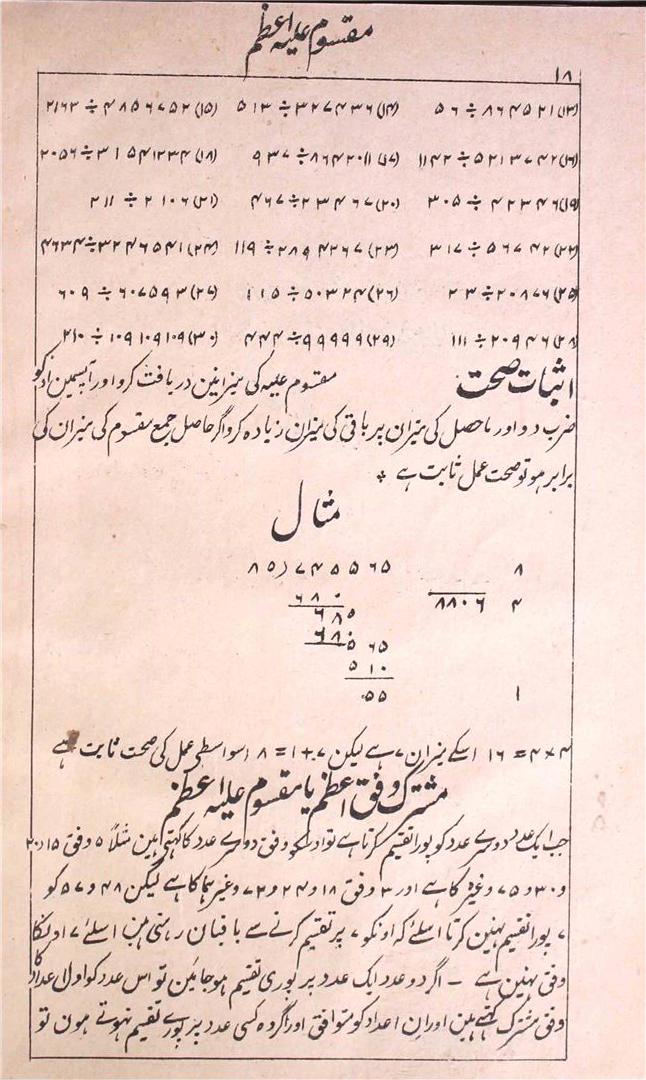 مقسوم علیہ اعظم
۱۸
(۱۳) ۸۶۴۵۲۱ ÷ ۵۶ (۱۴) ۳۲۷۴۳۶ ÷ ۵۱۳ (۱۵) ۴۸۵۶۷۵۲ ÷ ۲۱۶۳
(۱۶) ۵۲۱۳۷۴۲ ÷ ۱۱۴۲ (۱۷) ۸۶۴۲۰۱۱ ÷ ۹۳۷ (۱۸) ۳۱۵۴۱۲۳۴ ÷ ۲۰۵۶
(۱۹) ۴۲۳۴۶ ÷ ۳۰۵ (۲۰) ۲۳۴۶۷ ÷ ۴۶۷ (۲۱) ۲۱۰۶ ÷ ۲۱۱
(۲۲) ۵۶۷۴۲ ÷ ۳۱۷ (۲۳) ۲۸۹۴۲۶۷ ÷ ۱۱۹ (۲۴) ۳۲۴۶۵۴۱ ÷ ۴۶۳۴
(۲۵) ۲۰۸۷۶ ÷ ۲۳ (۲۶) ۵۰۳۲۴ ÷ ۱۱۵ (۲۷) ۶۰۷۵۹۳ ÷ ۶۰۹
(۲۸) ۲۰۹۴۶ ÷ ۱۱۱ (۲۹) ۹۹۹۹۹ ÷ ۴۴۴ (۳۰) ۱۰۹۱۰۹۱۰۹ ÷ ۲۱۰
اثبات صحت مقسوم علیہ کی میزانین دریافت کرو اور آپسمین انکو
ضرب دو اور ماحصل کی میزان پر باقی کی میزان زیادہ کرو اگر حاصل جمع مقسوم کی میزان کی
برابر ہو تو صحت عمل ثابت ہے *
مثال
۸۵) ۷۴۸۵۶۵ ۸
۶۸۰ ۸۸۰۶ ۴
۶۸۵
۶۸۰ ۵۶۵
۵۱۰
۵۵ ۱
۴×۴ = ۱۶ اسکے میزان ۷ ہے لیکن ۷+۱ = ۸ اسواسطی عمل کی صحت ثابت ہے
مشترک وفق اعظم یا مقسوم علیہ اعظم
جب ایک عدد دوسرے عدد کو پورا تقسیم کرتا ہے تو اوسکو وفق دوسرے عدد کا کہتے ہین مثلاً ۵ وفق ۱۵ و۲۰
و۳۰ و ۷۵ وغیرہ کا ہے اور ۳ وفق ۱۸ و ۲۴ و ۷۲ وغیرہما کا ہے لیکن ۴۸ و ۵۷ کو
۷ پورا تقسیم نہین کرتا اسلئے کہ اونکو ۷ پر تقسیم کرنے سے باقیان رہتی ہین اسلئے ۷ اونکا
وفق نہین ہے ۔ اگر دو عدد ایک عدد پر پوری تقسیم ہو جائین تو اس عدد کو اول اعداد کا
وفق مشترک کہتے ہین اور ان اعداد کو متوافق اور اگر وہ کسی عدد پر پورے تقسیم نہوتے ہون تو